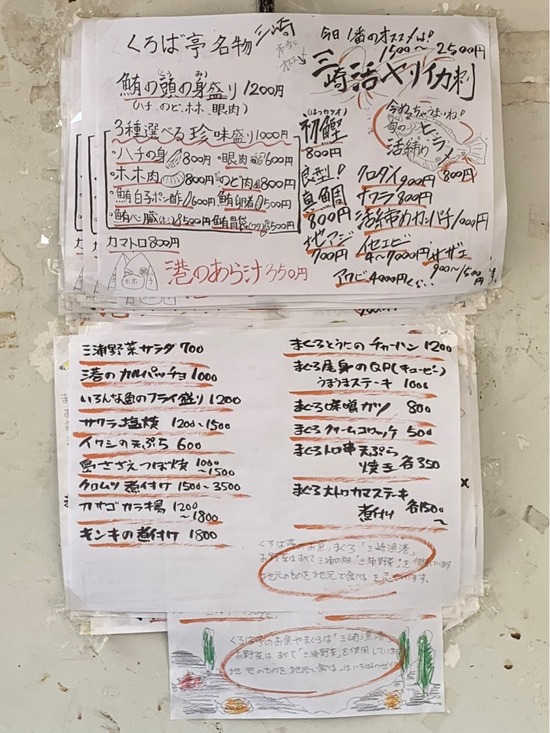 くろば亭 名物 三崎
鮪の頭の身盛り 1200円
(ハチ、のど、ホホ、眼肉)
3種選べる珍味盛り 1000円
・ハチの身 800円 ・眼肉 600円
・ホホ肉 800円 ・のど肉 800円
・鮪白子ポン酢 600円
・鮪心臓
カマトロ 800円
ホホ
港のあら汁 350円
今日1番のオススメは!
1500〜2500円
三崎活ヤリイカ刺
初鰹
800円
ヒラメ
活締め
800円
良型!
真鯛
800円
地アジ
700円
クロダイ 900円
サワラ 800円
活締めカンパチ 1000円
イセエビ
4〜7000円
サザエ
900〜1500円
アワビ 4000円くらい
三浦野菜サラダ 700
港のカルパッチョ 1000
いろんな魚のフライ盛り 1200
サワラ塩焼 1200〜1500
イワシの天ぷら 600
島さざえつぼ焼 1000〜1500
クロムツ煮付け 1500〜3500
カサゴカラ揚 1200〜1800
キンキの煮付け 1800
まぐろとうにのチャーハン 1200
まぐろ尾身のQP(キューピー)
うまうまステーキ 1000
まぐろ味噌カツ 800
まぐろクリームコロッケ 500
まぐろトロ串天ぷら
焼き 各350
まぐろ大トロカマステーキ
煮付け 各1500〜
くろば亭のお魚、まぐろ「三崎漁港」
お野菜はすべて三浦の畑「三浦野菜」を
地元のものを地元で食べる
くろば亭のお魚やまぐろは「三崎漁港」
お野菜はすべて「三浦野菜」を使用しています
地元のものを地元で食べる